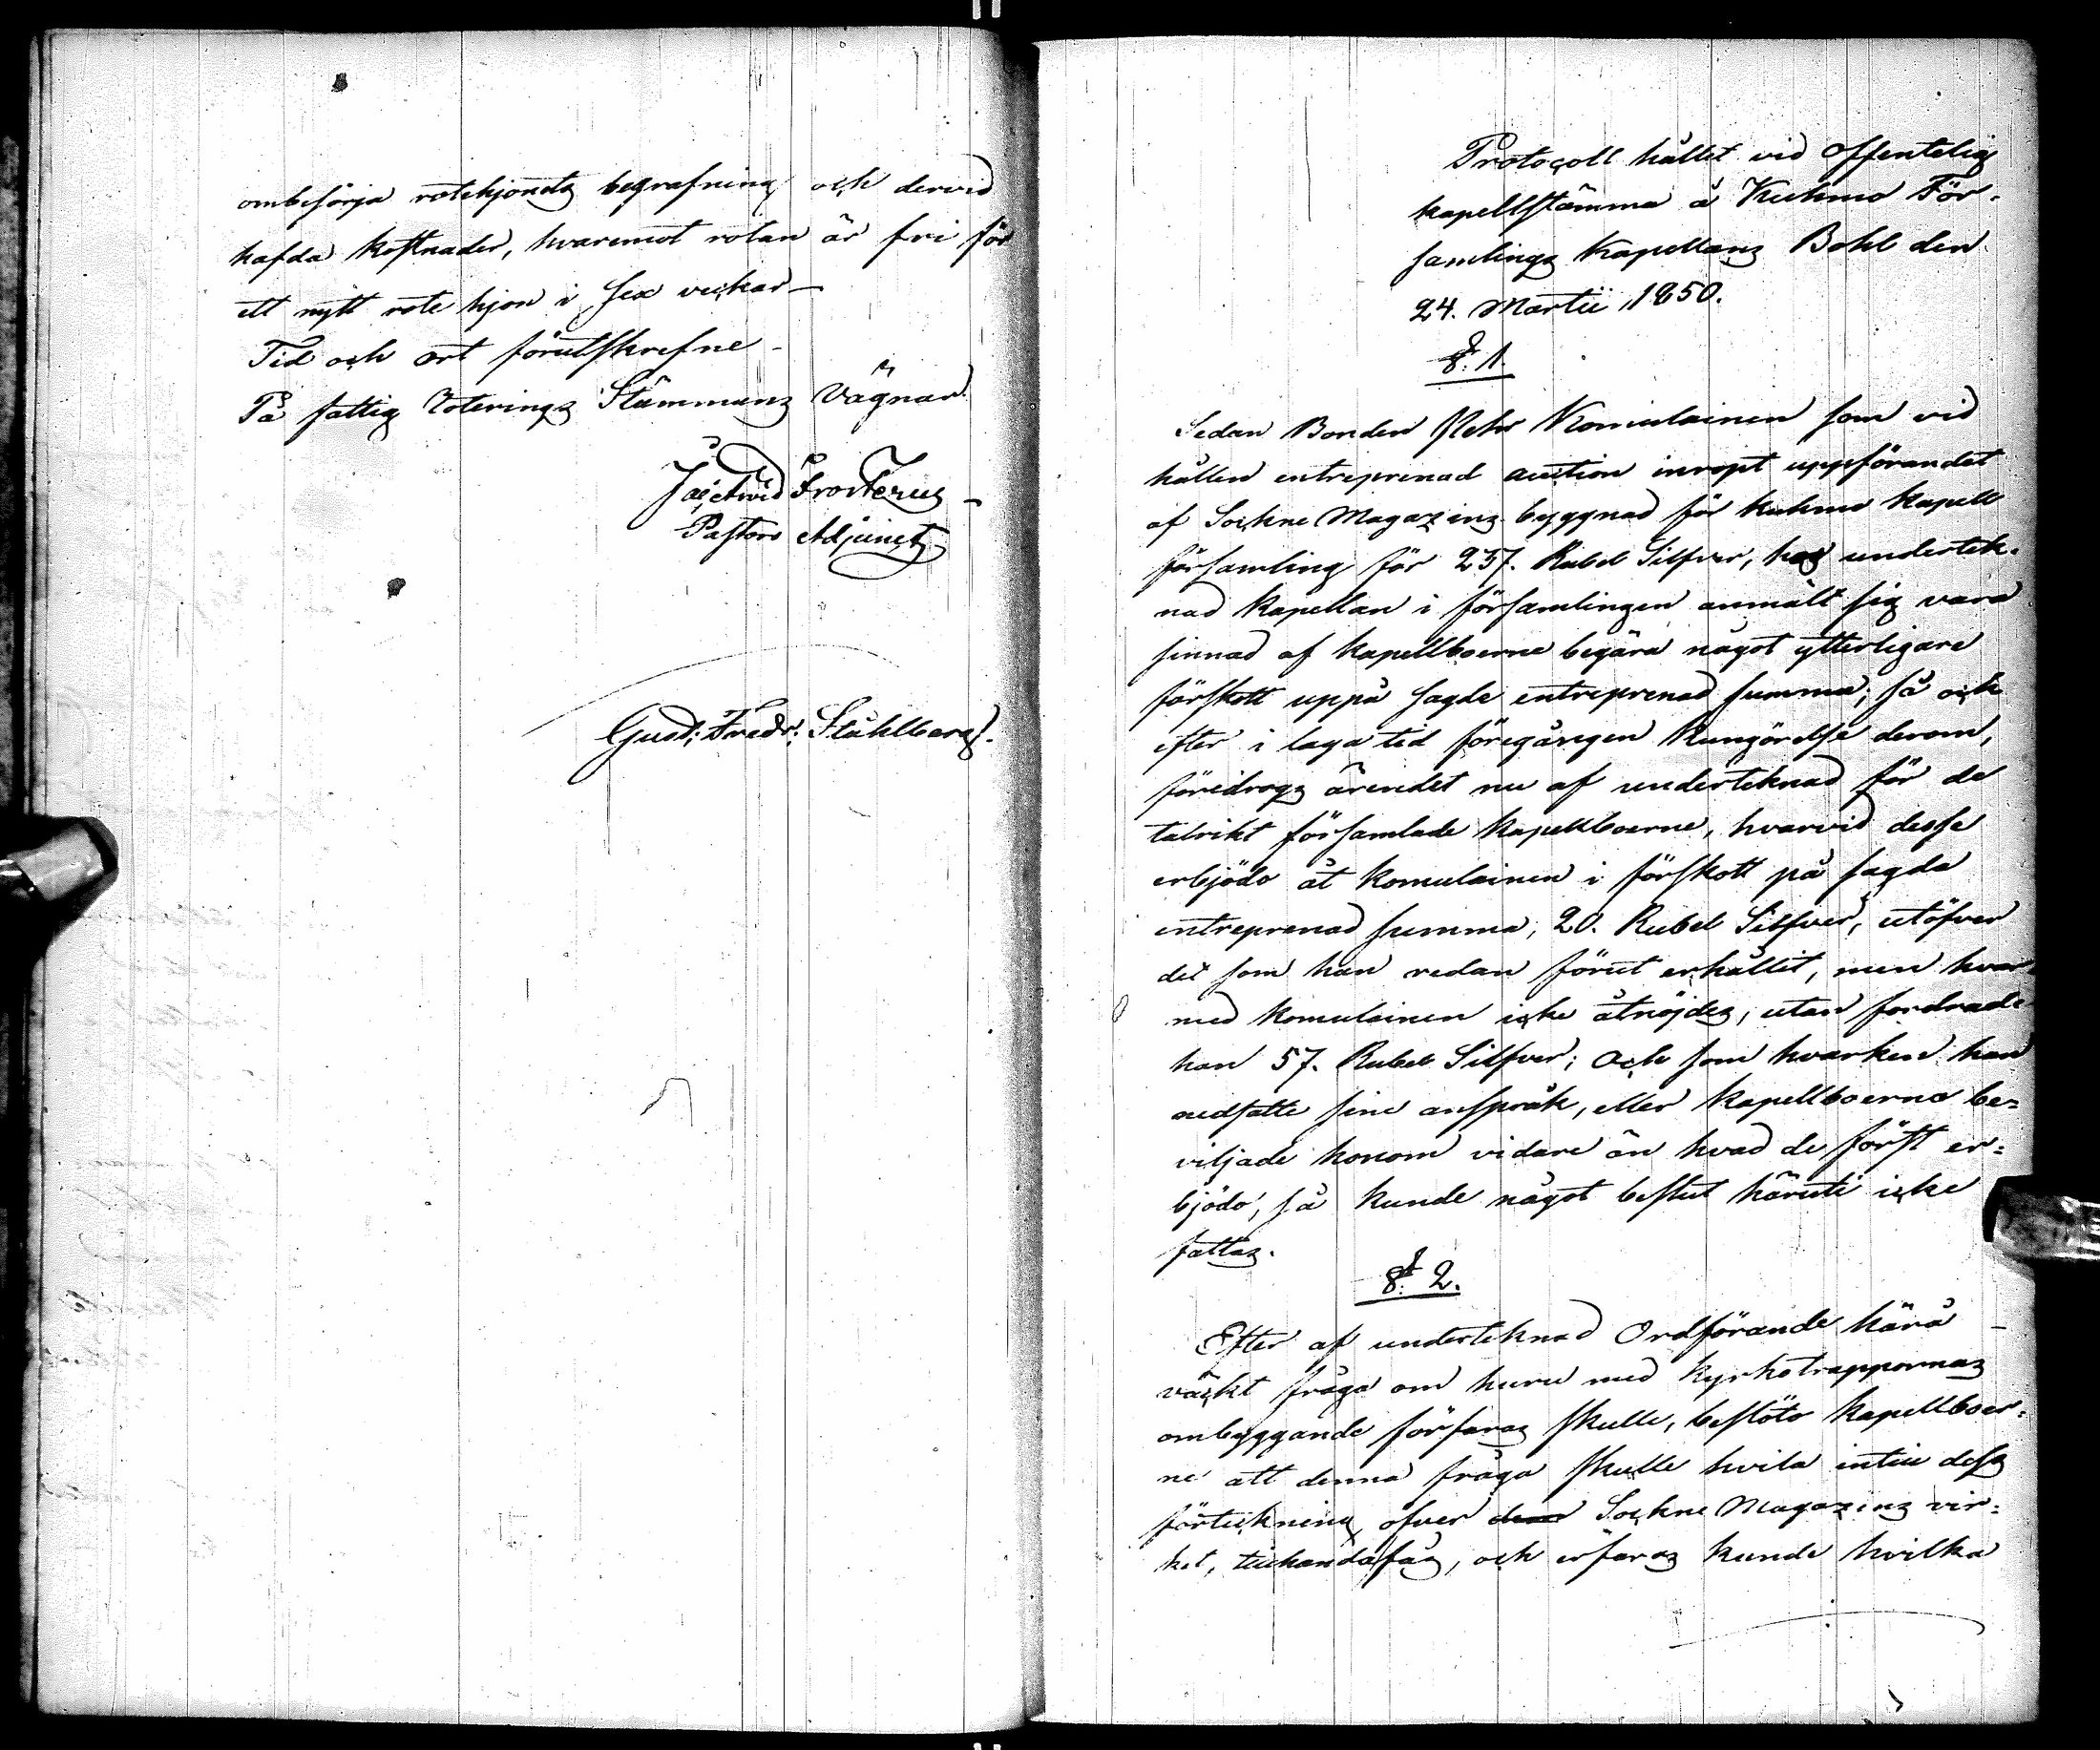 ombesörja rotehjonets begrafning och dervid
hafda kostnader, hvaremot rotan är fri för
ett nytt rote hjon i sex veckar –
Tid och ort förutskrefne –
På fattig Roterings Stämmans vägnar
Frosterus –
Pastors Adjunct
Gust: Fredr: Ståhlberg.
Protocoll hållet vid offentelig
kapellstämma å Kuhmo För-
samlings Kapellans Bohl den
24. Martii 1850.
§. 1.
Sedan Bonden Petr Komulainen som vid
hållen entreprenad auction inropt uppförandet
af Sockne Magazins byggnad för Kuhmo Kapell
församling för 237. Rubel Silfver, hos underteck-
nad Kapellan i församlingen anmält sig vara
sinnad af kapellboerne begära något ytterligare
förskott uppå sagde entreprenad summa; så och
efter i laga tid föregången Kungörelse derom,
föredrogs ärendet nu af undertecknad för de
talrikt församlade kapellboerne, hvarvid desse
erbjödo åt Komulainen i förskott på sagda
entreprenad summa, 20. Rubel Silfver, utöfver
det som han redan förut erhållit, men hvar
med Komulainen icke åtnöjdes, utan fordrade
han 57. Rubel Silfver; Och som hvarken han
nedsatte sine anspråk, eller Kapellboerna be=
viljade honom vidare än hvad de först er=
bjödo, så kunde något beslut häruti icke
fattas.
§. 2.
Efter af undertecknad Ordförande härå –
väckt fråga om huru med kyrkotrappornas
ombyggande förfaras skulle, beslöto Kapellboer=
ne att denna fråga skulle hvila intill dess
förteckning öfver Sockne Magazins vir=
ket, tillhandafås, och erfaras kunde hvilka